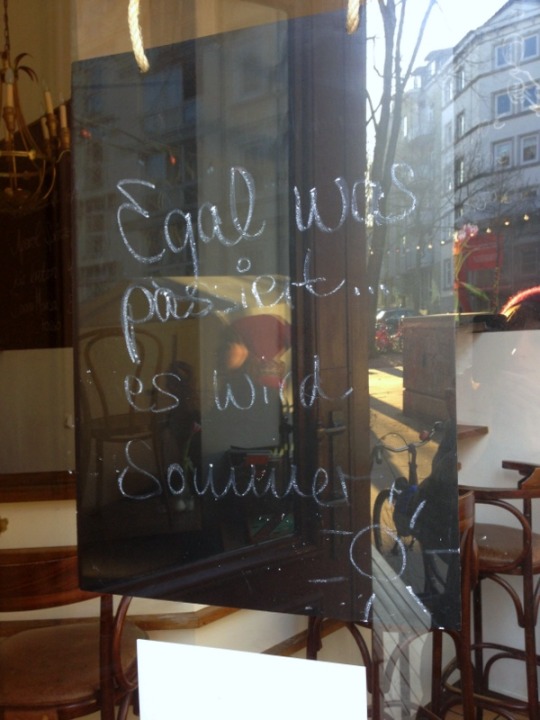 Egal was
passiert...
es wird
Sommer